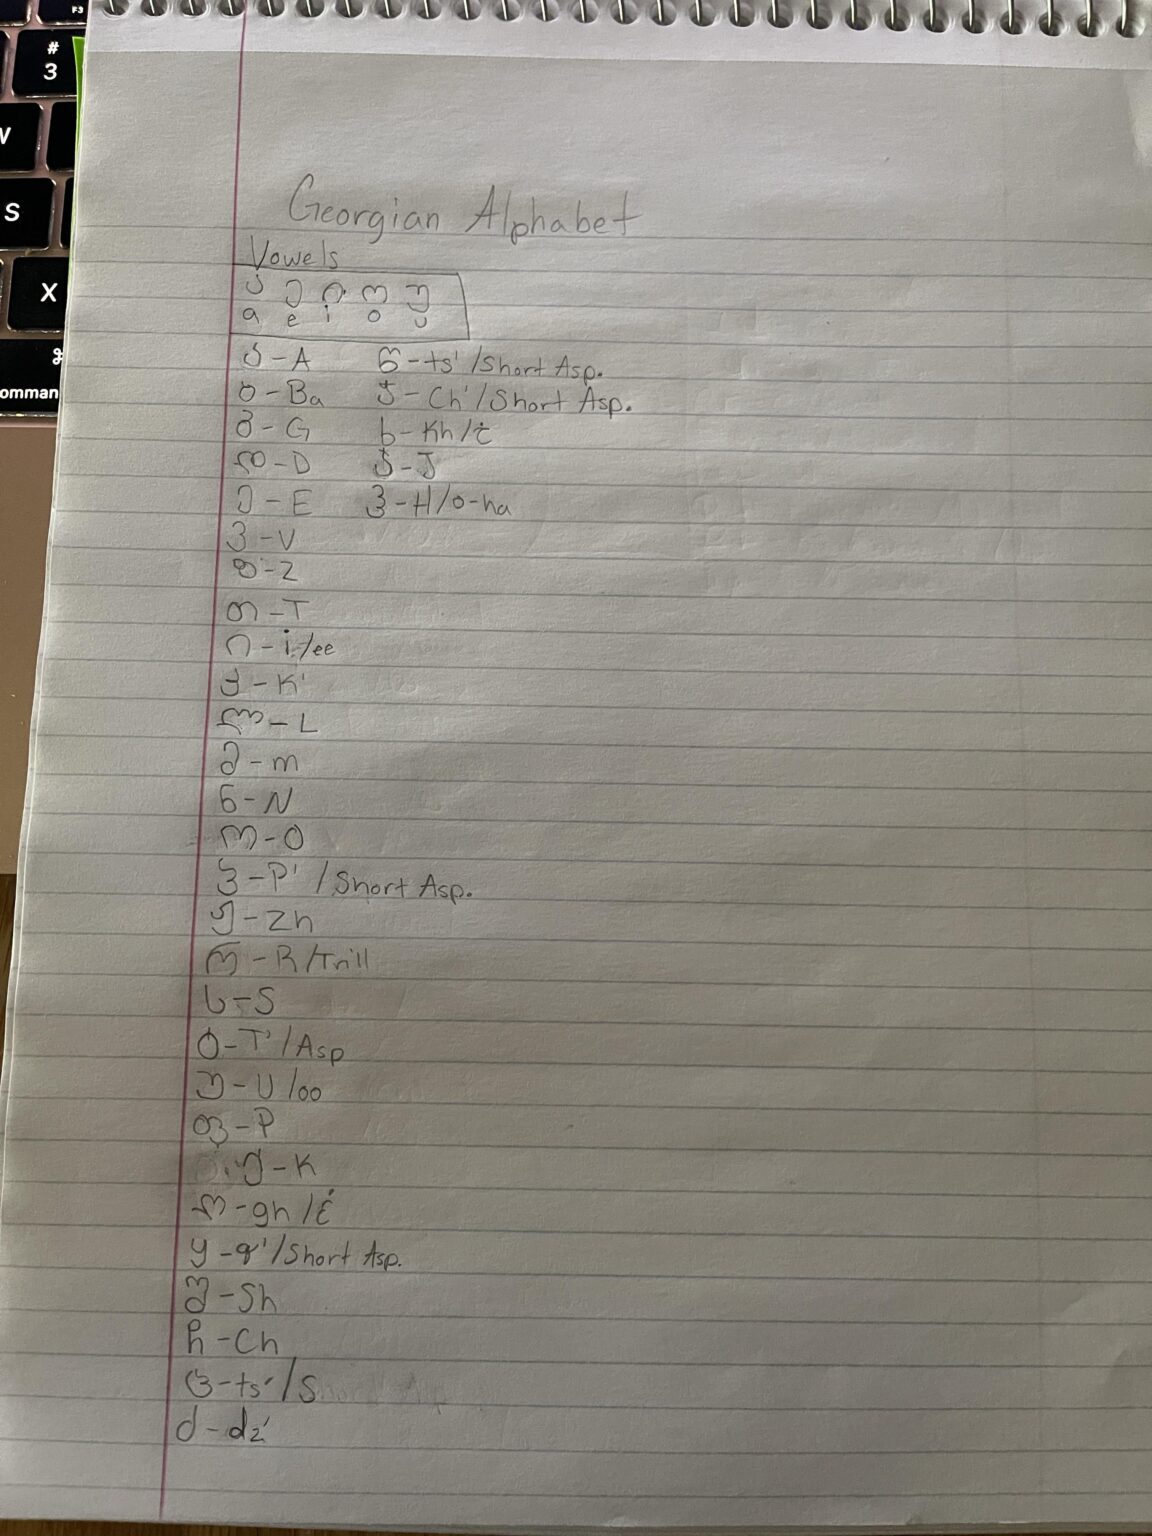 F3
#
3
W
S
X
⌘
comman
Georgian Alphabet
Vowels
ა ე ი ო უ
a e i o u
ა - A
ბ - Ba
გ - G
დ - D
ე - E
ვ - V
ზ - Z
თ - T
ი - i/ee
კ - K'
ლ - L
მ - m
ნ - N
ო - O
პ - P' / Short Asp.
ჟ - Zh
რ - R/Trill
ს - S
ტ - T' / Asp
უ - U/oo
ფ - P
ქ - K
ღ - gh / غ
ყ - q' / Short Asp.
შ - Sh
ჩ - Ch
ც - ts' / S
ძ - dz'
წ - ts' / Short Asp.
ჭ - Ch' / Short Asp.
ხ - Kh / خ
ჯ - J
ჰ - H / o-ha